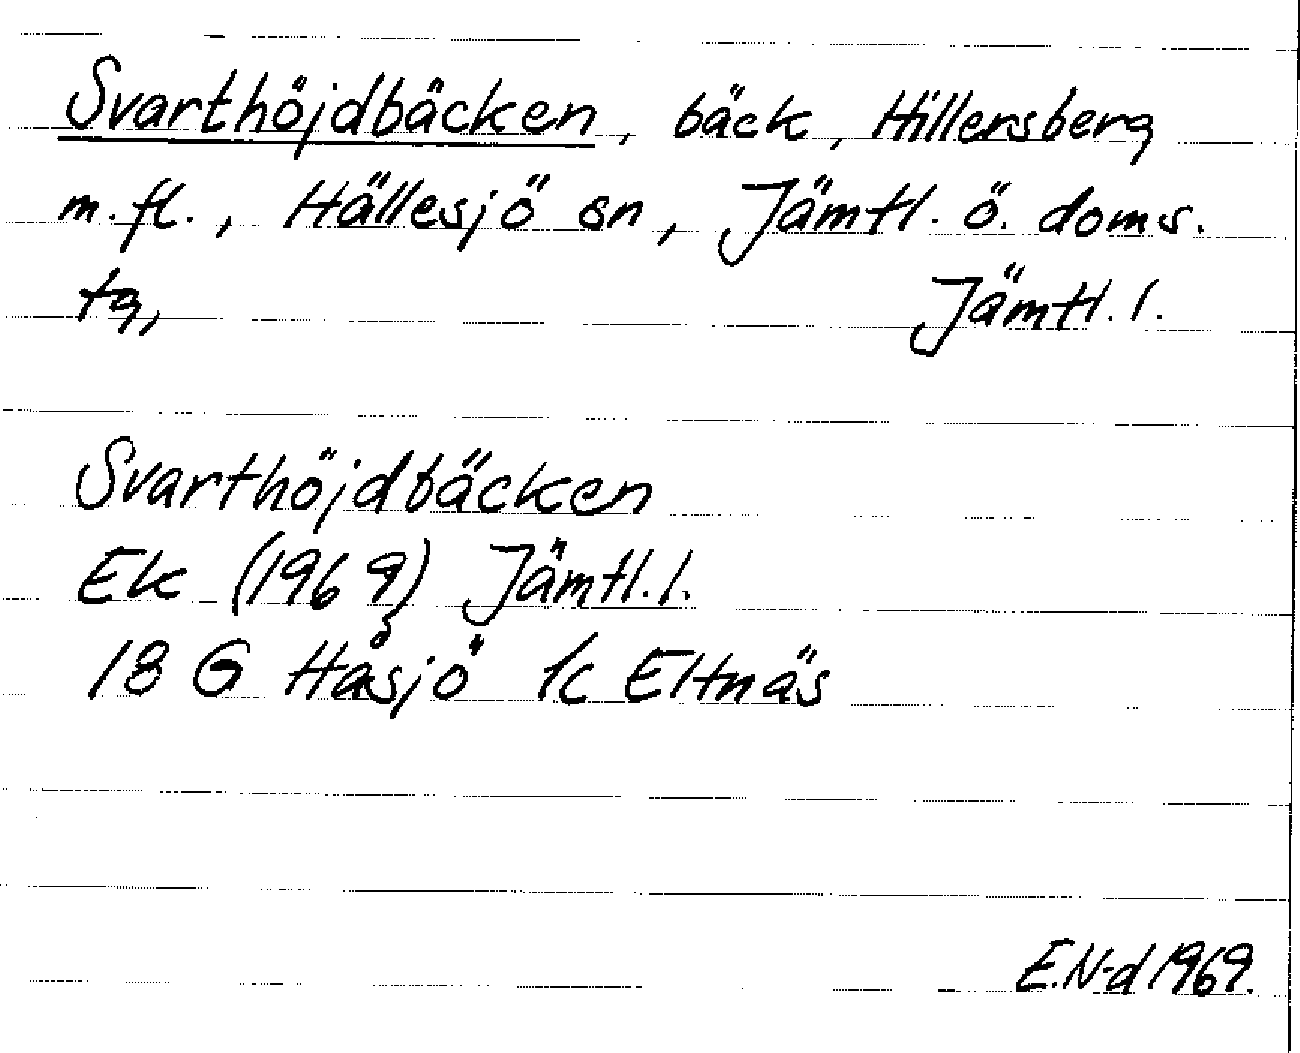 Svarthöjdbäcken, bäck, Hillersberg
m.fl., Hällesjö sn, Jämtl. ö. doms.
tg, Jämtl. l.
Svarthöjdbäcken
Ek (1969) Jämtl. l.
18 G Håsjö 1c Eltnäs
E.N-d 1969.